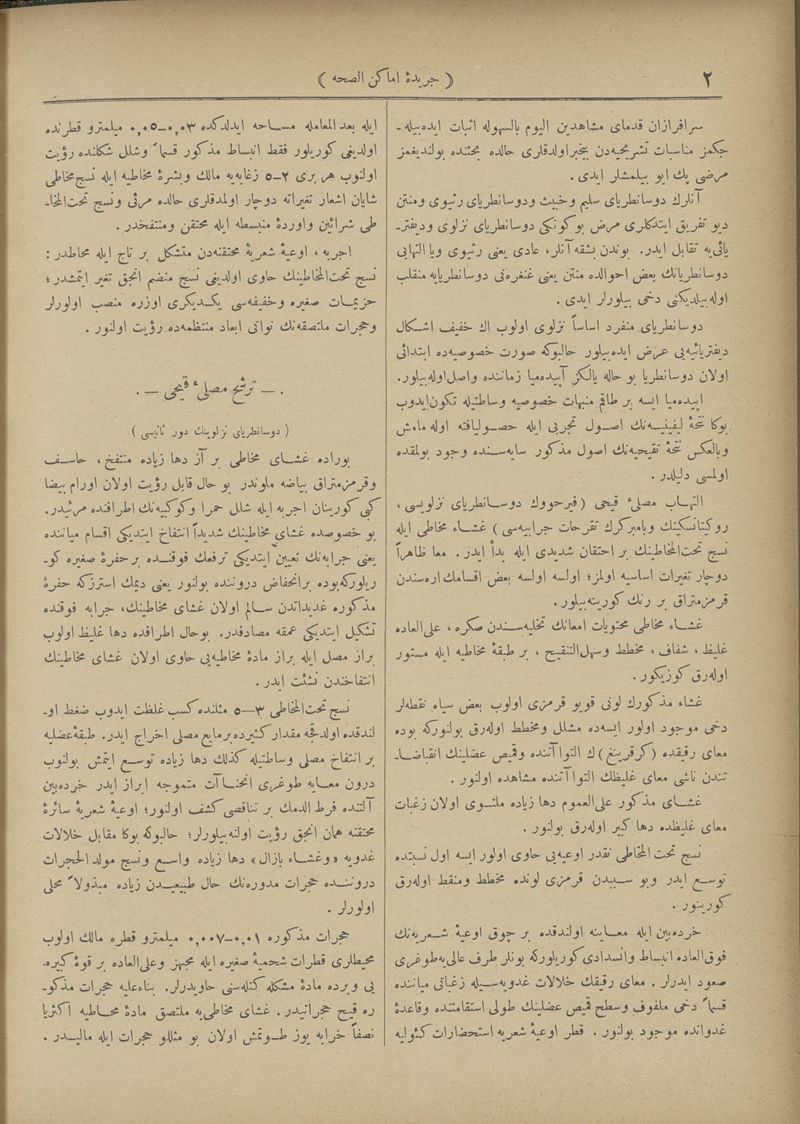 ٢
( جريدۀ اماكن الصحه )
سرافرازان قدمای مشاهدين اليوم بالسهوله اثبات ايده بيله‌ـ
جكمز مناسبات تشريحيه‌دن بيخبر اولدقلری حالده بحثنده بولنديغمز
مرضی پك ايو بيلمشلر ايدی .
آنلرك دوسانطريای سليم وخبيث ودوسانطريای رئيوی ومنتن
ديو تفريق ايتدكلری مرض بوكونكی دوسانطريای نزلوی وديفتر‌ـ
يائی‌يه تقابل ايدر. بوندن بشقه آنلر، عادی يعنی رئيوی ويا التهابی
دوسانطريانك بعض احوالده منتن يعنی غنغره‌نی دوسانطريايه منقلب
اوله‌بيلديكنی دخی بيلورلر ايدی .
دوسانطريای منفرد اساساً نزلوی اولوب اك خفيف اشكال
ديفتريائيه‌يی عرض ايده‌بيلور حالبوكه صورت خصوصيه‌ده ابتدائی
اولان دوسانطريا بو حاله يالكز آپيده‌ميا زماننده واصل اوله‌بيلور.
اپيده‌ميا ايسه بر طاقم منبهات خصوصيه وساطتيله تكون ايدوب
بوكا نتحۀ ليفينيه‌نك اصول تجربی ايله حصوليافته اوله مامش
وبالعكس نتحۀ تقيحيه‌نك اصول مذكور سايه‌سنده وجود بولمقده
اولمسی دليلدر .
التهاب مصلئ قيحی (فيرحووك دوسانطريای نزلويسی ،
روكيتانسكينك وبامبركرك تقرحات جرابيه‌سی) غشاء مخاطی ايله
نسج تحت‌المخاطينك بر احتقان شديدی ايله بدأ ايدر . معا ظاهراً
دوچار تغيرات اساسيه اولمز؛ اولسه اولسه بعض اقسامك اره‌سندن
قرمزمتراق بر رنك كورينه‌بيلور .
غشاء مخاطی محتويات امعانك تخليه‌سندن صكره ، علی‌العاده
غليظ ، شفاف ، مخطط وسهل‌التنقيح ، بر طبقۀ مخاطيه ايله مستور
اوله‌رق كوزيكور .
غشاء مذكورك لونی قويو قرمزی اولوب بعض سياه نقطه‌لر
دخی موجود اولور ايسه‌ده مشلل ومخطط اوله‌رق بولنوركه بوده
معای رقيقده (كرقرينغ) ك التوا آتنده وقميص عضلينك انقباضا‌ـ
تندن ناشی معای غليظك التوا آتنده مشاهده اولنور .
غشای مذكور علی‌العموم دها زياده ملتوی اولان زغبات
معای غليظده دها كبير اوله‌رق بولنور .
نسج تحت‌المخاطی نقدر اوعيه‌يی حاوی اولور ايسه اول نسبتده
توسع ايدر وبو سببدن قرمزی لونده مخطط ومنقط اوله‌رق
كورينور .
خرده‌بين ايله معاينه اولندقده بر چوق اوعيۀ شعريه‌نك
فوق‌العاده انبساط وانسدادی كوريلوركه بونلر طرف عالی‌يه طوغری
صعود ايدرلر . معای رقيقك خلالات غدويه‌سيله زغباتی مياننده
قسماً دخی ملفوف وسطح قميص عضلينك طولی استقامتنده وقاعدۀ
غدوانده موجود بولنور . قطر اوعيۀ شعريه استحضارات كئوليه
ايله بعدالمعامله مساحه ايدلدكده ٠,٠٣ــ٠,٠٥ ميلمترو قطرنده
اولديغی كوريلور فقط انبساط مذكور قسماً وشلل شكلنده رؤيت
اولنوب هر بری ٢ــ٥ زغابه‌يه مالك وبشرۀ مخاطيه ايله نسج مخاطی
شايان اشعار تغيراته دوچار اولمدقلری حالده مرئی ونسج تحت‌المخا‌ـ
طی شرائين واوردۀ منبسطه ايله محتقن ومنتفخدر .
اجربه ، اوعيۀ شعريۀ محتقنه‌دن متشكل بر تاج ايله محاطدر :
نسج تحت‌المخاطينك حاوی اولديغی نسج منضم انجق تغير ايتمشدر ؛
حزيمات صغيره وخفيفه‌سی يكديكری اوزره منصب اولورلر
وحجرات ملتصقه‌نك نواتی ابعاد منتظمه‌ده رؤيت اولنور .
. ــ ترشح مصلئ قيحی ــ .
( دوسانطريای نزلوينك دور ثانيسی )
بوراده غشای مخاطی بر آز دها زياده منتفخ ، حاسف
وقرمزمتراق بياضه ملوندر بو حال قابل رؤيت اولان اورام بيضا
كبی كورينان اجربه ايله شلل حمرا وكوكبيه‌نك اطرافنده مرئيدر.
بو خصوصده غشای مخاطينك شديداً انتفاخ ايتديكی اقسام مياننده
يعنی جرابه‌نك تعيين ايتديكی ترفعك فوقنده بر حفرۀ صغيره كو‌ـ
ريلوركه بوده بر انخفاض دروننده بولنور يعنی ديمك استرزكه حفرۀ
مذكوره غديداتدن سالم اولان غشای مخاطينك، جرابه فوقنده
تشكيل ايتديكی عمقه مصادفدر. بو حال اطرافده دها غليظ اولوب
براز مصل ايله براز مادۀ مخاطيه‌يی حاوی اولان غشای مخاطينك
انتفاخندن نشئت ايدر .
نسج تحت‌المخاطی ٣ــ٥ مثلنده كسب غلظت ايدوب ضغط او‌ـ
لندقده اولدقجه مقدار كثيرده بر مايع مصلی اخراج ايدر. طبقۀ عضليه
بر انتفاخ مصلی وساطتيله كذلك دها زياده توسع ايتمش بولنوب
درون معايه طوغری انحناآت متموجه ابراز ايدر خرده‌بين
آلتنده فرط الدمك بر تناقصی كشف اولنور؛ اوعيۀ شعريۀ سائرۀ
محتقنه همان انجق رؤيت اولنه‌بيلورلر؛ حالبوكه بوكا مقابل خلالات
غدويه «وغشاء بازال» دها زياده واسع ونسج مولد الحجرات
دروننده حجرات مدوره‌نك حال طبيعيدن زياده مبذولاً محلی
اولورلر .
حجرات مذكوره ٠,٠١ــ٠,٠٠٧ ميلمترو قطره مالك اولوب
محيطلری قطرات شحميۀ صغيره ايله مجهز وعلی‌العاده بر قوۀ كبيره‌ـ
يی وبرده مادۀ مشكله كتله‌سنی حاويدرلر. بناءعليه حجرات مذكو‌ـ
ره قيح حجراتيدر. غشای مخاطی‌يه ملتصق مادۀ مخاطيه اكثريا
نصفاً خرابه يوز طوتمش اولان بو مثللو حجرات ايله ماليدر .